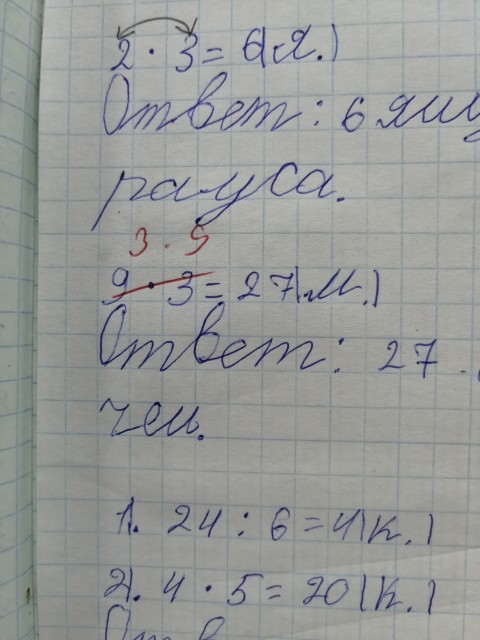 2 · 3 = 6(я.)
Ответ: 6 ящ
рауса.
3 · 9
9 · 3 = 27(м.)
Ответ: 27
чей.
1. 24 : 6 = 4(к.)
2). 4 · 5 = 20(к.)
Отв